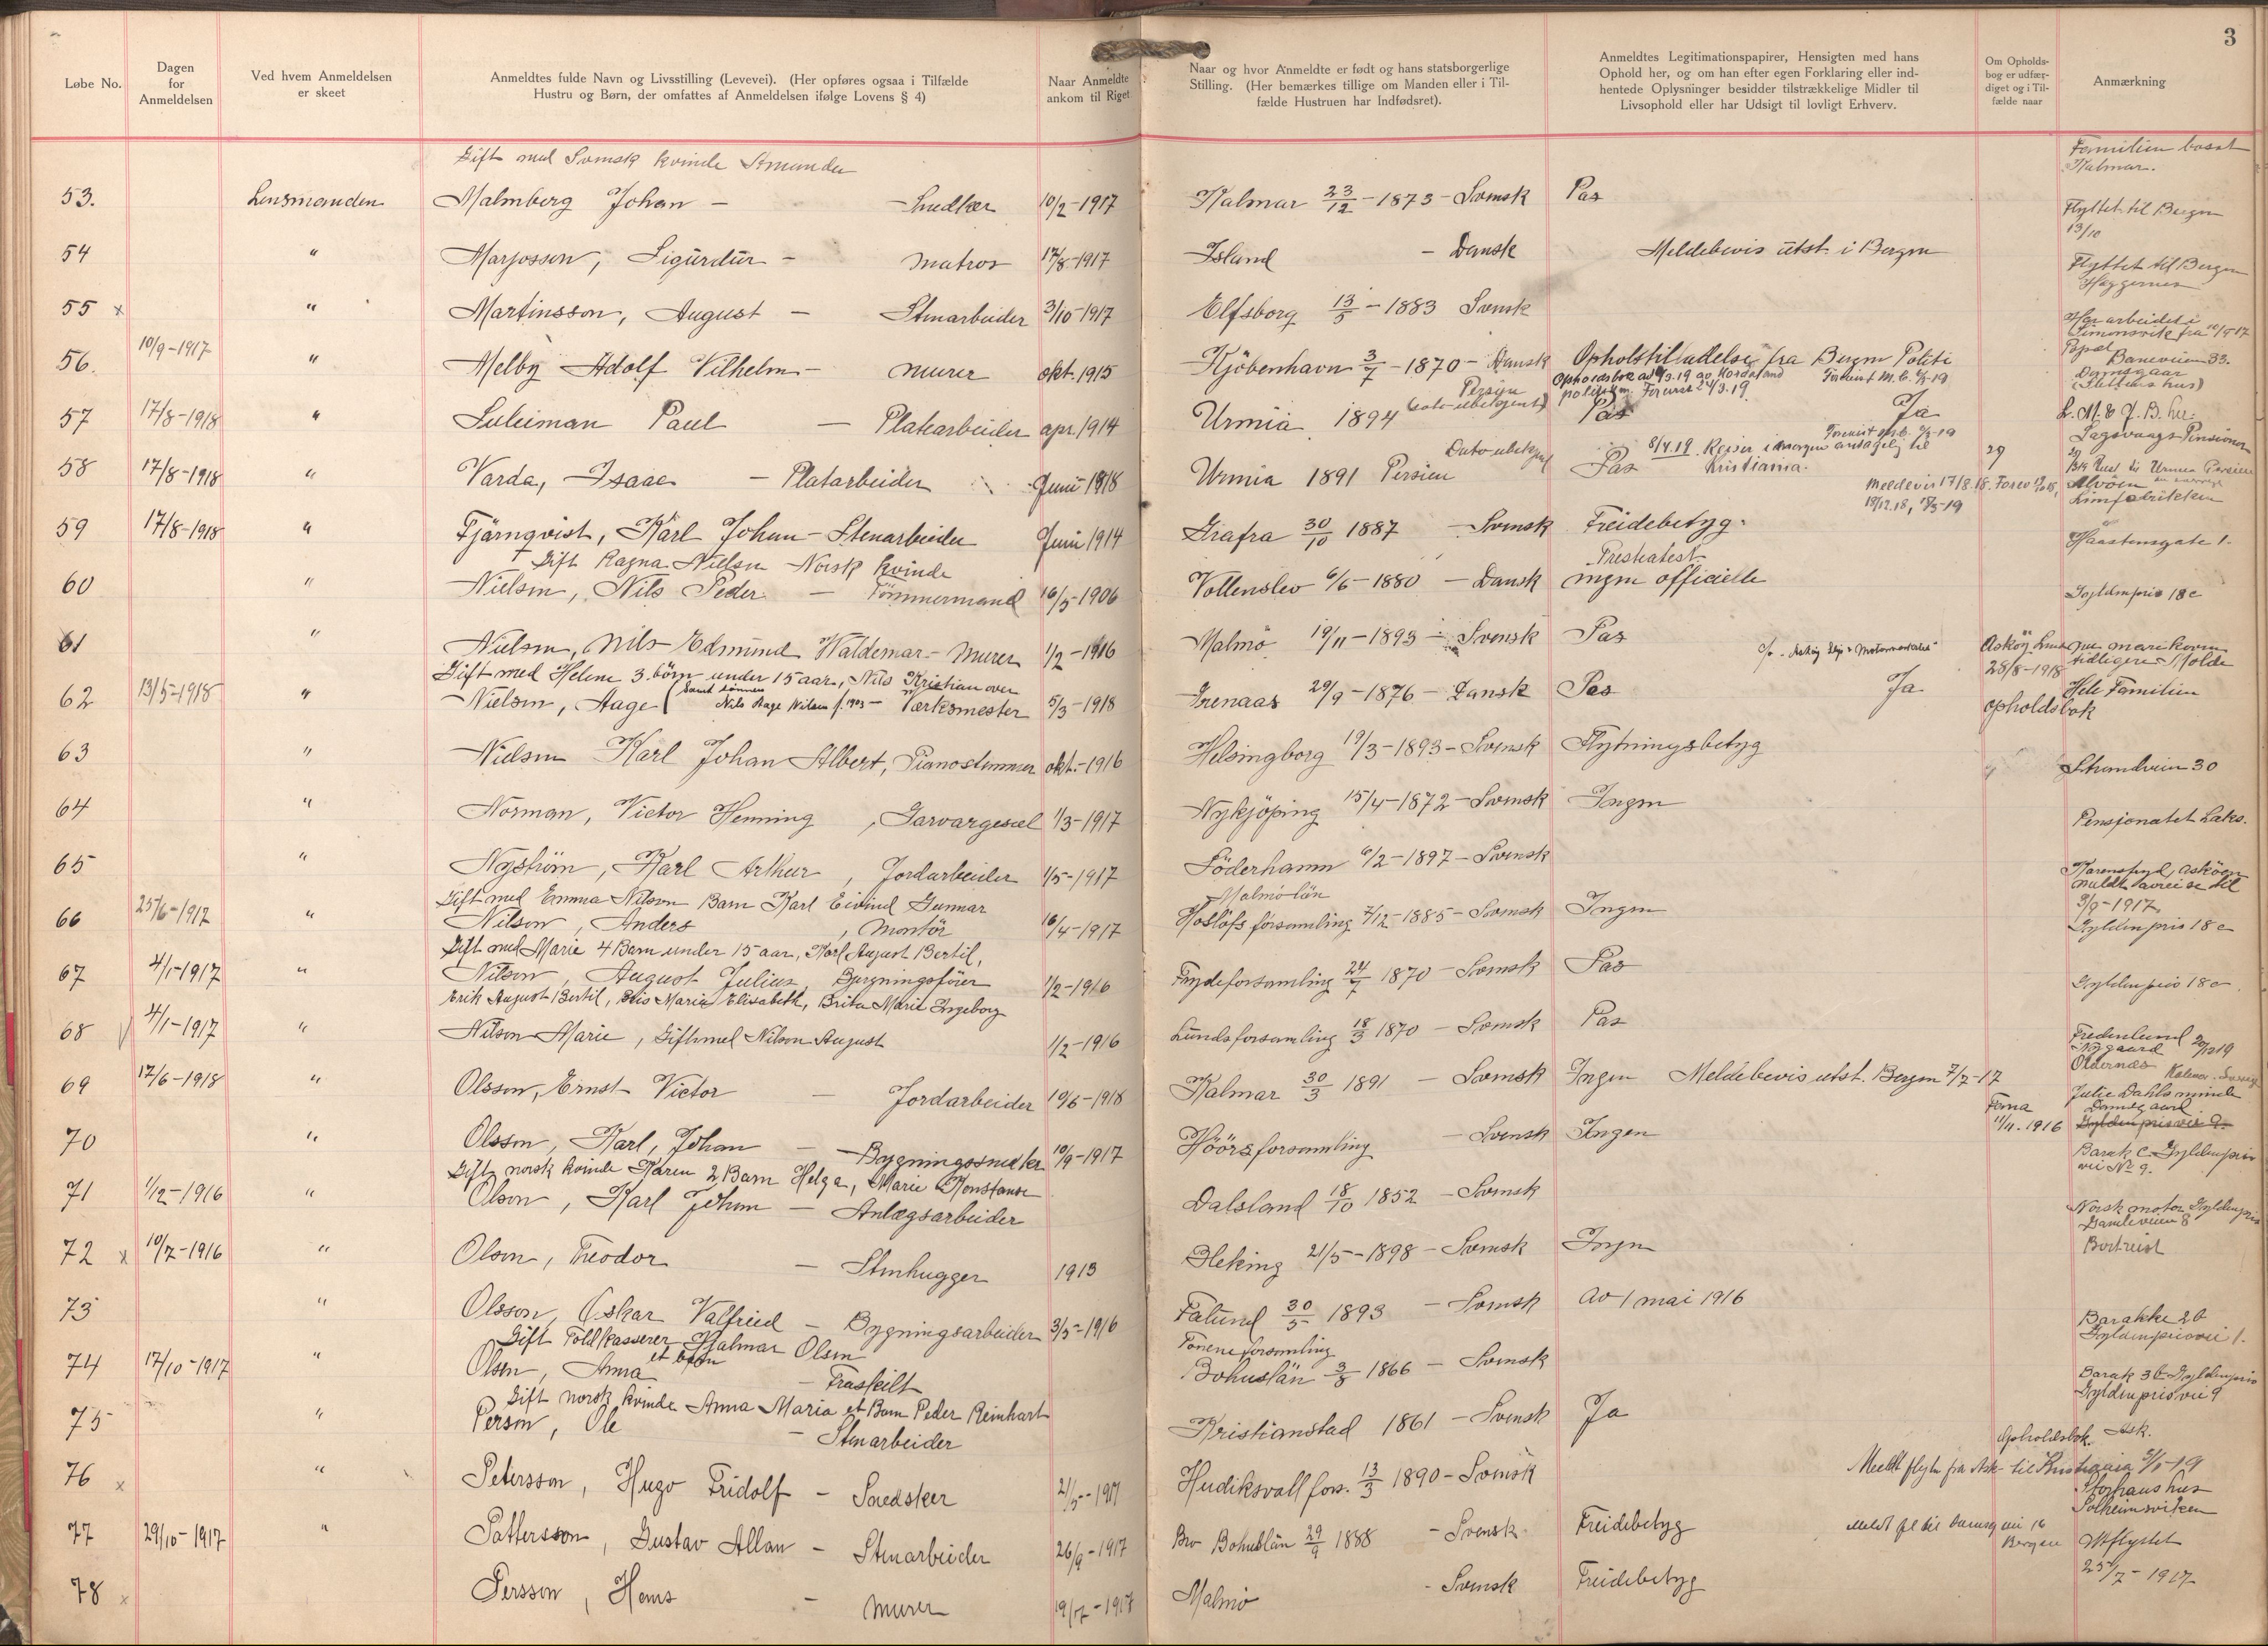 3
Løbe No.
Dagen for Anmeldelsen
Ved hvem Anmeldelsen er skeet
Anmeldtes fulde Navn og Livsstilling (Levevei). (Her opføres ogsaa i Tilfælde
Hustru og Børn, der omfattes af Anmeldelsen ifølge Lovens § 4)
Naar Anmeldte ankom til Riget
Naar og hvor Anmeldte er født og hans statsborgerlige
Stilling. (Her bemærkes tillige om Manden eller i Til-
fælde Hustruen har Indfødsret).
Anmeldtes Legitimationspapirer, Hensigten med hans
Ophold her, og om han efter egen Forklaring eller ind-
hentede Oplysninger besidder tilstrækkelige Midler til
Livsophold eller har Udsigt til lovligt Erhverv.
Om Opholds-
bog er udfær-
diget og i Til-
fælde naar
Anmærkning
Gift med Svensk kvinde Amanda
Familien bosat Kalmar.
53. Lensmanden Malmberg Johan - Snedker 10/2-1917 Kalmar 23/12-1873 - Svensk Pas
Flyttet til Bergen 13/10
54 " Marjosson, Sigurdur - Matros 17/8-1917 Island - Dansk Meldebevis utst. i Bergen
Flyttet til Bergen
55 x " Martinsson, August - Stenarbeider 3/10-1917 Elfsborg 13/5-1883 Svensk
Har arbeidet i Simonsvik fra
56. 10/9-1917 " Melby Adolf Vilhelm - Murer okt. 1915 Kjöbenhavn 3/7-1870 - Dansk Opholstilladelse fra Bergen Politi
Baneveien 33. Damsgaar
57 17/8-1918 " Suleiman Paul - Platearbeider apr. 1914 Urmia 1894 Persien (dato ubekjent) Pas Ja
58 17/8-1918 " Varda, Isaac - Platarbeider Juni 1918 Urmia 1891 Persien Dato ubekjent Pas
8/4.19 Reiser imorgen antagelig til Kristiania.
59 17/8-1918 " Fjärnqvist, Karl Johan - Stenarbeider Juni 1914 Grafra 30/10 1887 - Svensk Freidebetyg.
Meldevis 17/8.18.
Alvøen Limfabrikken
Gift Ragna Nielsen Norsk kvinde
Presteatest
60 " Nielsen, Nils Peder - Tömmermand 16/5-1906 Vollenslev 6/6-1880 - Dansk ingen officielle
61 " Nielsen, Nils Edmund Waldemar - Murer 1/2-1916 Malmö 19/11-1893 - Svensk Pas
Gyldenpris 18c
Gift med Helene 3 börn under 15 aar, Nils Kristian over
62 13/5-1918 " Nielsen, Aage (Samt sönnen Nils Aage Nilsen f. 1903 - Værksmester 5/3-1918 Grenaas 29/9-1876 - Dansk Pas Ja
28/8-1918 tidligere Molde
Hele Familien opholdsbok
63 " Nielsen Karl Johan Albert, Pianostemmer okt.-1916 Helsingborg 19/3-1893 - Svensk Flytningsbetyg
Strandveien 30
64 " Norman, Victor Henning, Garvargesæl 1/3-1917 Nykjöping 15/4-1872 - Svensk Ingen
Pensjonatet Laks.
65 " Nyström, Karl Arthur, Jordarbeider 1/5-1917 Söderhamn 6/2-1897 - Svensk
Gift med Emma Nilson Barn Karl Eivind Gunnar
Malmölän
66 25/6-1917 " Nilson, Anders, Montör 16/4-1917 Hoslöfs forsamling 7/12-1885 - Svensk Ingen
3/9-1917
Gyldenpris 18c
Gift med Marie 4 Barn under 15 aar, Karl August Bertil,
67 4/1-1917 " Nilson, August Julius, Bygningsförer 1/2-1916 Frydeforsamling 24/7 1870 - Svensk Pas
Gyldenpris 18c
Erik August Bertil, Elis Maria Elisabeth, Brita Marie Ingeborg
68 4/1-1917 " Nilson Marie, Gift med Nilson August 1/2-1916 Lundsforsamling 18/3 1870 - Svensk Pas
69 17/6-1918 " Olsson, Ernst Victor - Jordarbeider 10/6-1918 Kalmar 30/3 1891 - Svensk Ingen Meldebevis utst. Bergen 7/7-17
Fredenlund Nygaard
Julie Dahls minde Damsgaard
70 " Olsson, Karl, Johan - Bygningssnedker 10/9-1917 Höörsforsamling - Svensk Ingen
11/11. 1916 Gyldenprisvei 9
Gift norsk kvinde Karen 2 Barn Helga, Marie Konstanse
Barak C Gyldenpris vei No 9.
71 1/12-1916 " Olson, Karl Johan - Anlægsarbeider Dalsland 18/10 1852 - Svensk
Norsk motor Gyldenpris
72 x 10/7-1916 " Olson, Theodor - Stenhugger 1913 Bleking 21/5-1898 - Svensk Ingen
Bortreist
73 " Olsson, Oskar Valfreid - Bygningsarbeider 3/5-1916 Falund 30/5 1893 - Svensk av 1 mai 1916
Barakke 2b
Gyldenprisvei 1.
Gift Toldkasserer Hjalmar Olsen et barn
74 17/10-1917 " Olsen, Anna - Fraskilt Tanene forsamling Bohuslän 3/8 1866 - Svensk
Barak 3b Gyldenpris
Gyldenprisvei 9
Gift norsk kvinde Anna Maria et Barn Peder Reinhart
75 " Persen, Ole - Stenarbeider Kristianstad 1861 - Svensk Ja
Opholdsbok. Ask.
76 x " Petersson, Hugo Fridolf - Snedker 21/5-1917 Hudiksvall fors. 13/3 1890 - Svensk
Meldt flyttn fra Ask til Kristiania
Storhaus hus
Solheimsviken
77 29/10-1917 " Pattersson, Gustav Allan - Stenarbeider 26/9-1917 Bro Bohuslän 29/9 1888 - Svensk Freidebetyg
Bergen
Utflyttet 25/7-1917
78 x Persson, Hans - Murer 19/7-1917 Malmö - Svensk Freidebetyg